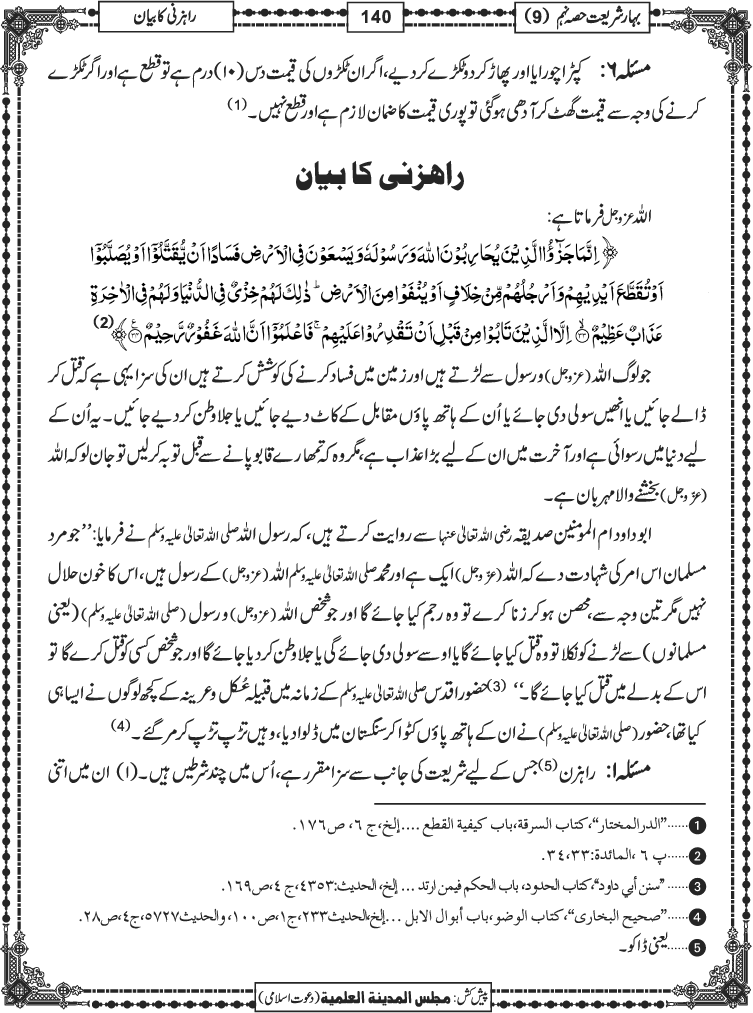 بہارِ شریعت حصہ نہم (9)
140
راہزنی کا بیان
مسئلہ ۶: کپڑا چورایا اور پھاڑ کر دو ٹکڑے کر دیے، اگر ان ٹکڑوں کی قیمت دس (۱۰) درم ہے تو قطع ہے اور اگر ٹکڑے
کرنے کی وجہ سے قیمت گھٹ کر آدھی ہوگئی تو پوری قیمت کا ضمان لازم ہے اور قطع نہیں۔ (1)
راھزنی کا بیان
اللہ عزوجل فرماتا ہے:
﴿ اِنَّمَا جَزٰٓؤُا الَّذِيْنَ يُحَارِبُوْنَ اللّٰهَ وَرَسُوْلَهٗ وَيَسْعَوْنَ فِي الْاَرْضِ فَسَادًا اَنْ يُّقَتَّلُوْۤا اَوْ يُصَلَّبُوْۤا
اَوْ تُقَطَّعَ اَيْدِيْهِمْ وَاَرْجُلُهُمْ مِّنْ خِلَافٍ اَوْ يُنْفَوْا مِنَ الْاَرْضِ ؕ ذٰلِكَ لَهُمْ خِزْيٌ فِي الدُّنْيَا وَلَهُمْ فِي الْاٰخِرَةِ
عَذَابٌ عَظِيْمٌ ﴿۳۳﴾ اِلَّا الَّذِيْنَ تَابُوْا مِنْ قَبْلِ اَنْ تَقْدِرُوْا عَلَيْهِمْ ۚ فَاعْلَمُوْۤا اَنَّ اللّٰهَ غَفُوْرٌ رَّحِيْمٌ ﴿۳۴﴾ ﴾ (2)
جو لوگ اللہ (عزوجل) و رسول سے لڑتے ہیں اور زمین میں فساد کرنے کی کوشش کرتے ہیں ان کی سزا یہی ہے کہ قتل کر
ڈالے جائیں یا انھیں سولی دی جائے یا اُن کے ہاتھ پاؤں مقابل کے کاٹ دیے جائیں یا جلا وطن کر دیے جائیں۔ یہ اُن کے
لیے دنیا میں رسوائی ہے اور آخرت میں ان کے لیے بڑا عذاب ہے، مگر وہ کہ تمھارے قابو پانے سے قبل توبہ کر لیں تو جان لو کہ اللہ
(عزوجل) بخشنے والا مہربان ہے۔
ابو داود ام المومنین صدیقہ رضی اللہ تعالیٰ عنہا سے روایت کرتے ہیں، کہ رسول اللہ صلی اللہ تعالیٰ علیہ وسلم نے فرمایا: ’’جو مرد
مسلمان اس امر کی شہادت دے کہ اللہ (عزوجل) ایک ہے اور محمد صلی اللہ تعالیٰ علیہ وسلم اللہ (عزوجل) کے رسول ہیں، اس کا خون حلال
نہیں مگر تین وجہ سے، محصن ہو کر زنا کرے تو وہ رجم کیا جائے گا اور جو شخص اللہ (عزوجل) و رسول (صلی اللہ تعالیٰ علیہ وسلم) (یعنی
مسلمانوں) سے لڑنے کو نکلا تو وہ قتل کیا جائے گا یا اوسے سولی دی جائے گی یا جلا وطن کر دیا جائے گا اور جو شخص کسی کو قتل کرے گا تو
اس کے بدلے میں قتل کیا جائے گا۔‘‘ (3) حضور اقدس صلی اللہ تعالیٰ علیہ وسلم کے زمانہ میں قبیلہ عُکل و عرینہ کے کچھ لوگوں نے ایسا ہی
کیا تھا، حضور (صلی اللہ تعالیٰ علیہ وسلم) نے ان کے ہاتھ پاؤں کٹوا کر سنگستان میں ڈلوا دیا، وہیں تڑپ تڑپ کر مر گئے۔ (4)
مسئلہ ۱: راہزن (5) جس کے لیے شریعت کی جانب سے سزا مقرر ہے، اُس میں چند شرطیں ہیں۔ (۱) ان میں اتنی
1 ......”الدرالمختار“، کتاب السرقة، باب کیفیة القطع .... إلخ، ج ۶، ص ۱۷۶.
2 ......پ ۶ ، المائدة: ۳۳، ۳۴.
3 ......”سنن أبي داود“، کتاب الحدود، باب الحکم فیمن ارتد ... إلخ، الحدیث: ۴۳۵۳، ج ۴، ص ۱۶۹.
4 ......”صحیح البخاری“، کتاب الوضو، باب أبوال الابل ... إلخ، الحدیث ۲۳۳، ج ۱، ص ۱۰۰، والحدیث ۵۷۲۷، ج ۴، ص ۲۸.
5 ......یعنی ڈاکو۔
پیش کش: مجلس المدینة العلمیة (دعوت اسلامی)